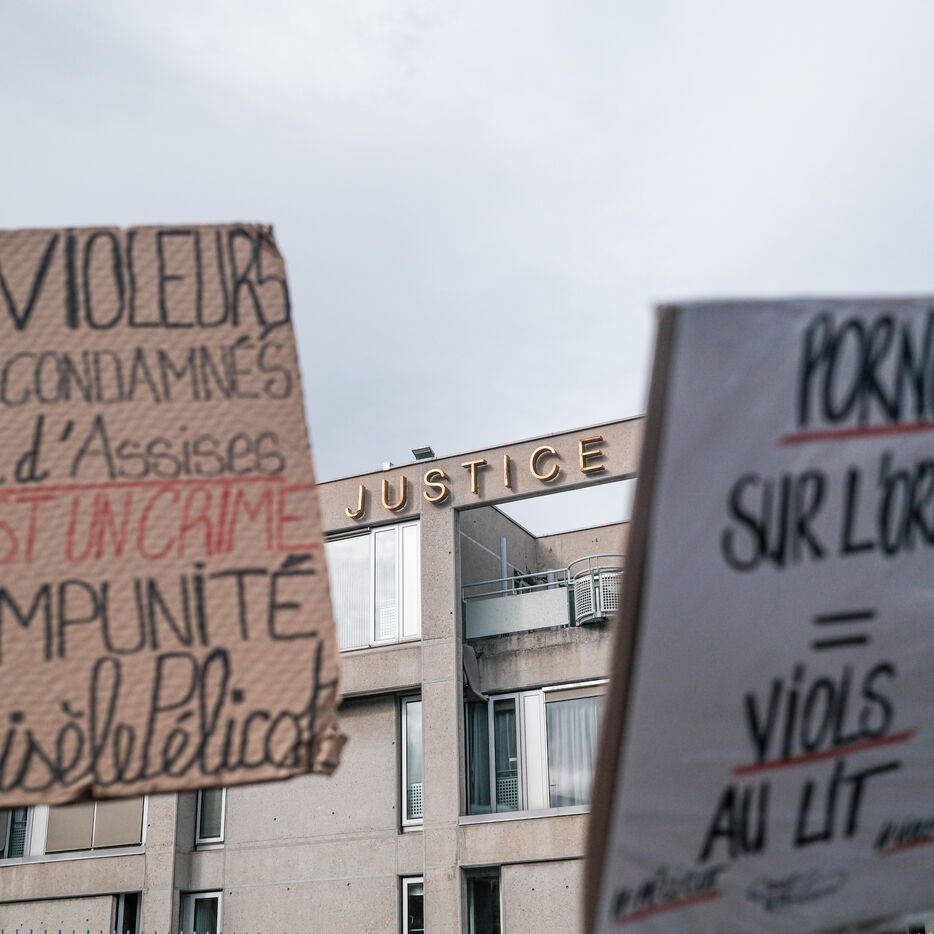 VIOLEURS
CONDAMNÉS
d'Assises
ST UN CRIME
MPUNITÉ
isèle Pélicot
JUSTICE
PORN
SUR L'OR
=
VIOLS
AU LIT